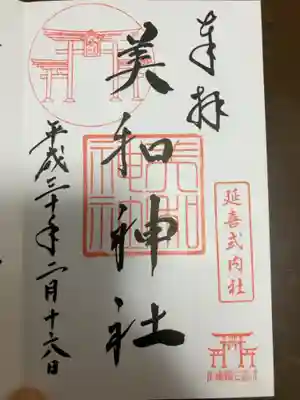 奉拝
延喜式内社
美和神社
美和神社
平成三十年二月十六日